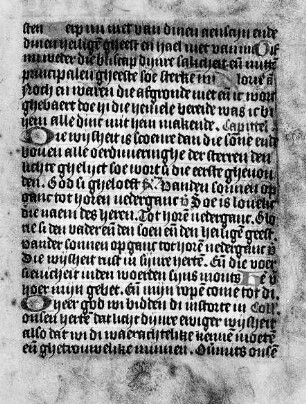 sten werp mi niet van dinen aenschin ende
dinen heilige gheest en hael niet van mi Gif
mi weder die bliscap dijnre salicheit en mitte
principalen gheeste soe sterke mi loue ās
Noch en waren die afgronde niet en ic wort
ghebaert doe hi die hemele bereide was ic bi
hem alle dinc mit hem makende. Capittel.
Die wijsheit is scoenre dan die sōne ende
bouen alle oerdineringhe der sterren den
lichte ghelijct soe wort si die eerste gheuon
den. God si gheloeft vanden sonnen op
ganc tot horen nederganc Soe is louelic
die naem des heren. Tot horen nederganc. Glo
rie si den vader en den soen en den heilige geest.
vander sonnen opganc tot horē nederganc
Die wijsheit rust in sijnre herte. En die voer
sienicheit inden woerden sijns monts
hoer mijn gebet. En mijn ropē come tot di.
O heer god wi bidden di instorte in Coll.
onsen herte dat licht dijnre ewiger wijsheit
also dat wi di waerachtelike kennē moetē
en ghetrouwelike minnen. Ouermits onsē